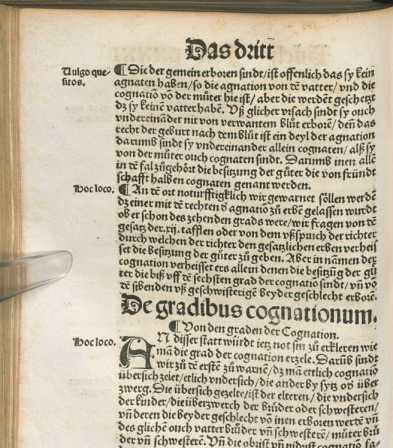 Das dritt
Vulgo que-
sitos.
¶ Die der gemein erboren sindt/ist offenlich das sy kein
agnaten haben/so die agnation von dē vatter/vnd die
cognatiō vō der mūter hie ist/aber die werdēt geschetzt
dz sy keinē vatter habē. Vß glicher vrsach sindt sy ouch
vndereināder nit von verwantem blůt erborē/deñ das
recht der geburt nach dem blůt ist ein deyl der agnation
darumb sindt sy vndereinander allein cognaten/alß sy
von der můter ouch cognaten sindt. Darumb inen allē
in dē fal zůgehört die besitzung der gůter die von fründt
schafft halben cognaten genant werden.
Hoc loco.
¶ An dē ort notturfftigklich wir gewarnet söllen werdē
dz einer mit dē rechten ð agnatiō zů erbē gelassen wurdt
ob er schon des zehenden grads were/wir fragen von dē
gesatz der .xij. tafflen oder von dem vßspruch der richter
durch welchen der richter den gesatzlichen erben verheis
set die besitzung der gůter zů geben. Aber in nāmen der
cognation verheisset ers allein denen die besitzūg der gů
ter die biß vff dē sechsten grad der cognatiō sindt/vñ vō
dē sibenden vß geschwistergit beyder geschlecht erborē.
De gradibus cognationum.
¶ Von den graden der Cognation.
Hoc loco.
AN disser statt würdt ietz not sin zů erkleren wie
mā die grad der cognation erzele. Darūb sindt
wir zů dē erstē zů warnē/dz mā etlich cognatiō
übersich zelet/etlich vndersich/die ander by sytz oð über
zwerg. Die übersich gezelte/ist der elteren/die vndersich
der kinder/die überzwerch der brůder oder schwesteren/
vñ deren die beyder geschlecht vō inen erboren wertē vñ
des glichē ouch vatter brůder vñ schwesterē/můter brů
der vñ schwesterē. Vñ die